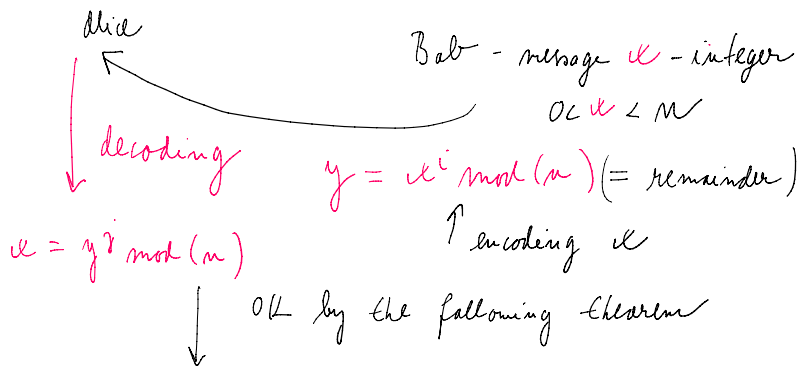 Alice
Bob - message x - integer
0 < x < n
decoding
y = xⁱ mod (n) (= remainder)
↑ encoding x
x = yʲ mod (n)
OK by the following theorem